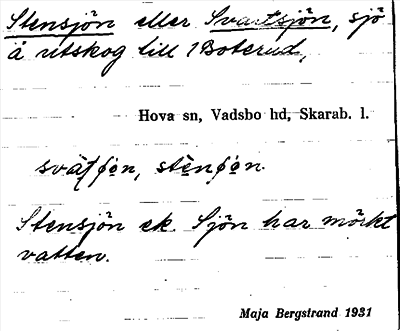 Stensjön eller Svartsjön, sjö
å utskog till 1 Boterud,
Hova sn, Vadsbo hd, Skarab. l.
stènʃön.
Stensjön ek. Sjön har mörkt
vatten.
Maja Bergstrand 1931